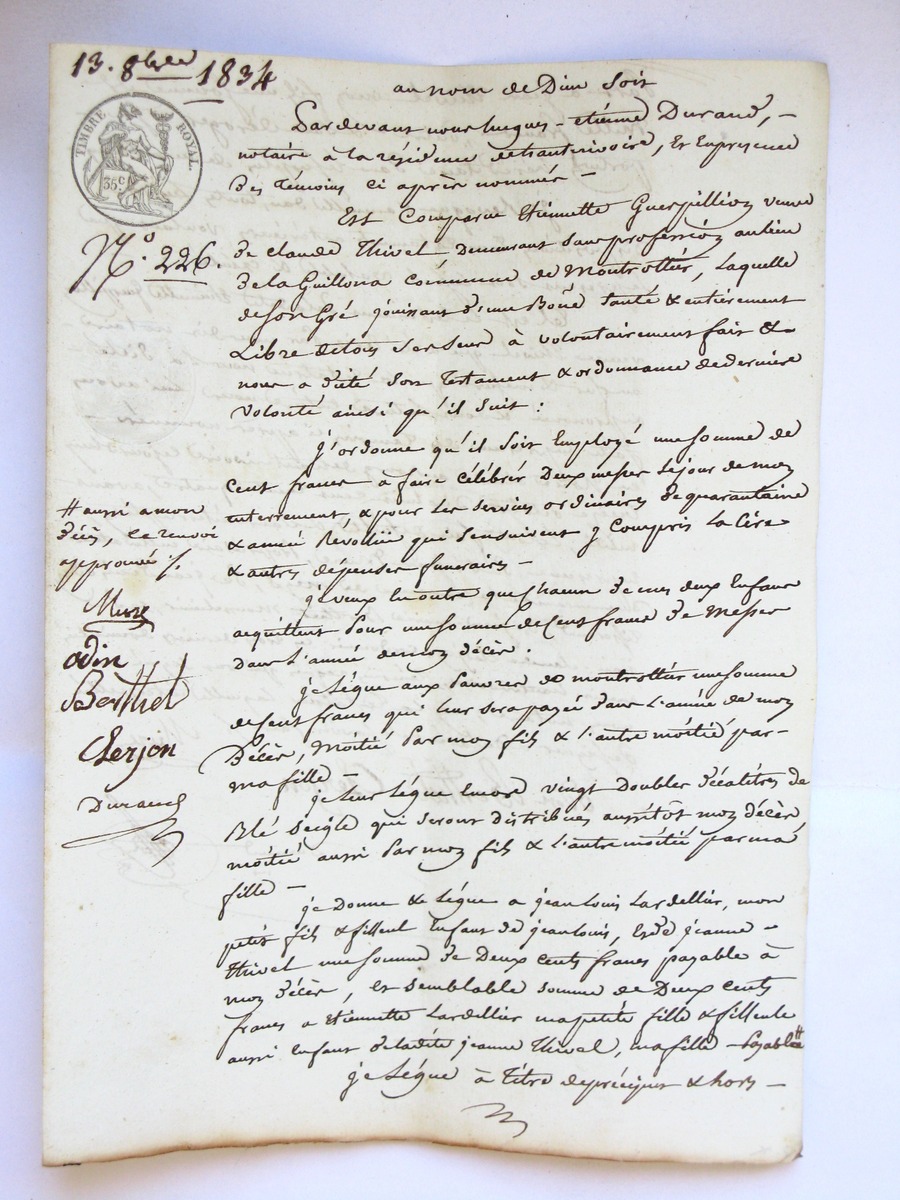 13. 8bre 1834
TIMBRE ROYAL.
35c
N.º 226.
au nom de Dieu soit
Pardevant nous hugues-etienne Durand, -
notaire à la résidence de hauterivoire, et En presence
des témoins ci après nommés -
Est Comparue Etiennette Guerpillion veuve
de claude Thivel Demeurant sans profession au lieu
de la Guillona commune de Montrottier, Laquelle
de son Gré jouissant d'une Bone santé & entièrement
Libre de tous ses sens à volontairement fait &
nous a dicté son testament & ordonnance de derniere
volonté ainsi qu'il suit :
j'ordonne qu'il soit Employé une somme de
Cent francs à faire célébrér Deux messes le jour de mon
enterrement, & pour les services ordinaires de quarantaine
& année Révolue qui s'ensuivent y Compris La Cire
& autres dépenses funeraires -
je veux en outre que chacun de mes deux Enfans
acquittent pour une somme de Cent francs de Messes
dans l'année de mon décès.
je Lègue aux pauvres de montrottier une somme
de Cent francs qui leur sera payée dans l'année de mon
Décès, Moitié par mon fils & l'autre moitié par -
ma fille -
je leur lègue encore vingt Doubles décalitres de
Blé seigle qui seront distribués aussitôt mon décès
moitié aussi par mon fils & l'autre moitié par ma
fille -
je donne & lègue a jean Louis Lardellier, mon
petit fils & filleul Enfant de jean louis, et de jeanne -
Thivel une somme de Deux cents francs payable à
mon décès, et semblable somme de Deux cents
francs a Etiennette Lardellier ma petite fille & filleule
aussi enfant de ladite jeanne Thivel, ma fille - payable #
je Lègue à titre de préciput & hors -
# aussi a mon
décès, le renvoi
approuvé ./.
odin
Berthet
Clerjon
Durand